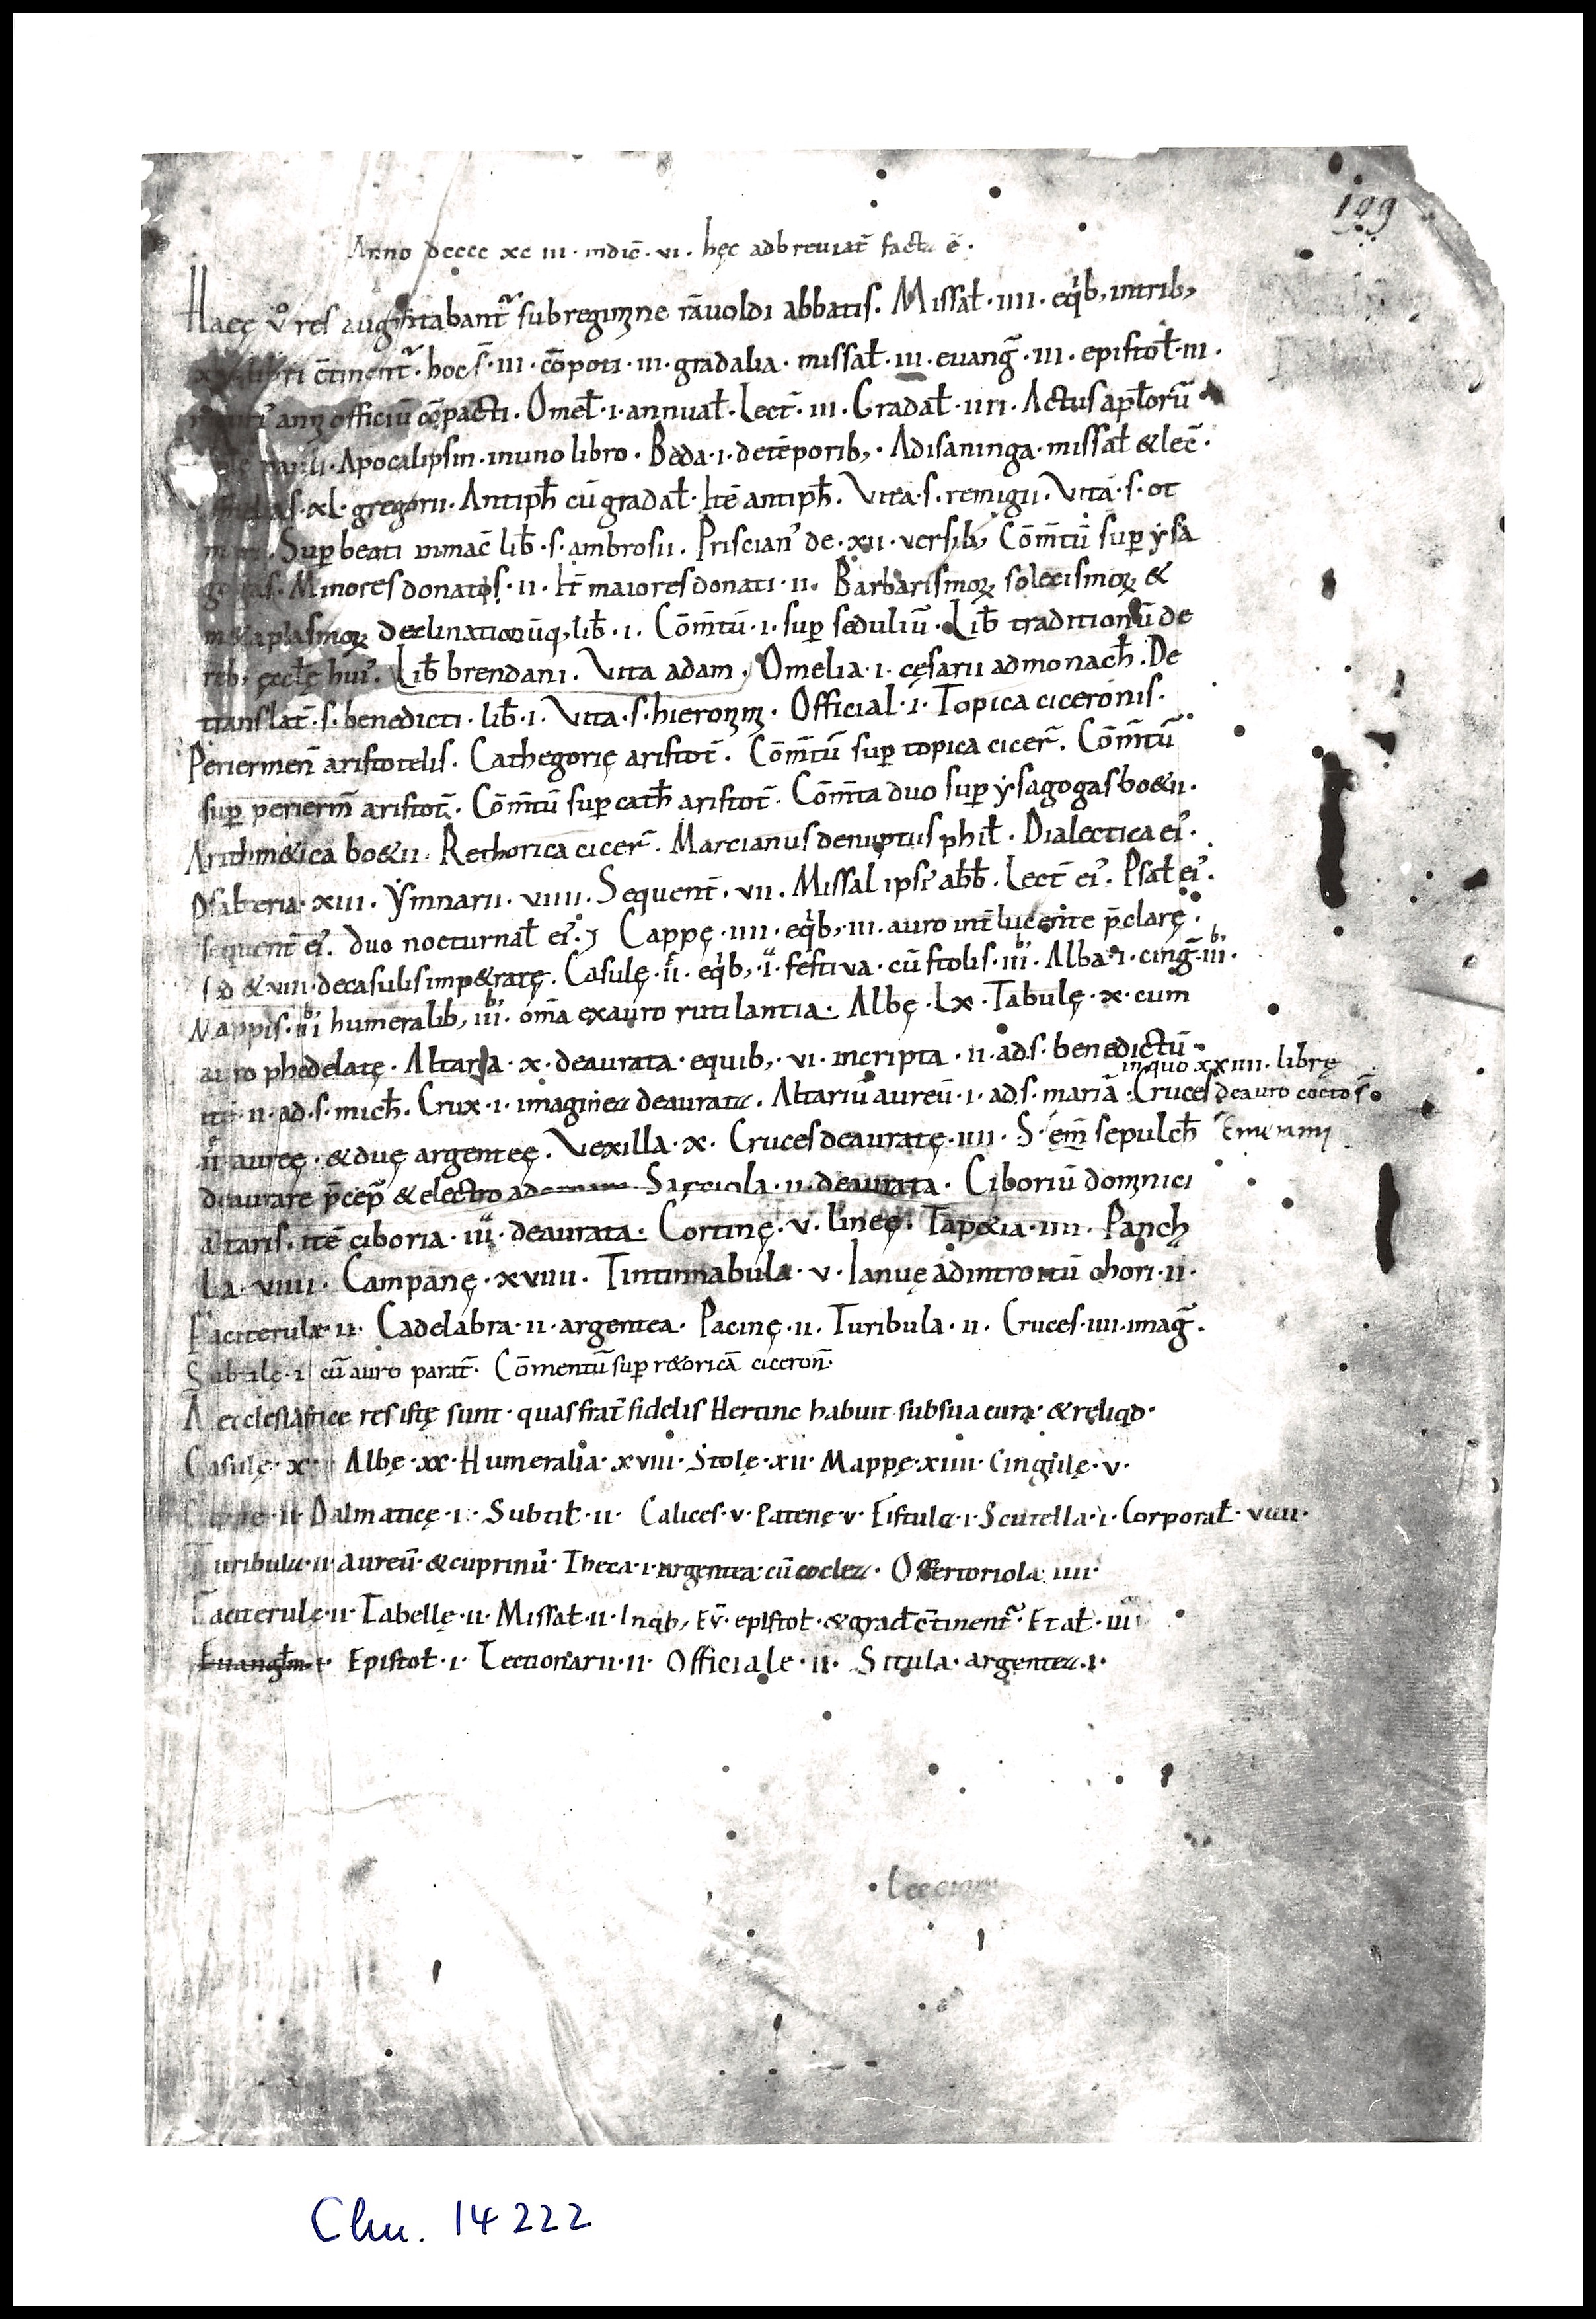 199
Anno dcccc xc iii · indic̄ · vi · hęc adbreuiat̄ facta ē ·
Haec v̊ res augmtabant̄ sub regimne rāuoldi abbatis. Missał · iiii · eqib; intrib;
libri c̄tinent̄ · hoc s̄ · iii · cōpoti · iii · gradalia · missał · iii · euang̅ · iii · epistoł · iii ·
anni officiū cōpacti. Omeł · i · annuał · Lect̄ · iii · Gradał · iiii · Actus apłorū
pauli · Apocalipsin · in uno libro · Beda · i · de tēporib; · Adisaninga · missał & lec̄ ·
xl · gregorii · Antiph̄ cū gradał · Itē antiph̄. Vita · s · remigii. Vita · s · ot
Sup beati inmac̄ lib̄ · s · ambrosii. Priscian' de · xii · versib; Cōm̄tū sup ysa
gogas · Minores donatos · ii · It̄ maiores donati · ii. Barbarismoꝝ solecismoꝝ &
m&aplasmoꝝ declinationūq; lib̄ · i. Cōm̄tū · i · sup seduliū. Lib̄ traditionū de
reb; ęccłę hui'. Lib̄ brendani. Vita adam. Omelia · i · cęsarii ad monach̄. De
translat̄ · s · benedicti · lib̄ · i. Vita · s · hieronim. Official · i · Topica ciceronis.
Periermen̄ aristotelis. Cathegorię aristot̄. Cōm̄tū sup topica cicer̄. Cōm̄tū
sup perierm̄ aristot̄. Cōm̄tū sup cath̄ aristot̄. Cōm̄ta duo sup ysagogas bo&ii.
Arithm&ica bo&ii. Rethorica cicer̄. Marcianus de nuptiis phił. Dialectica ei'.
Psalteria · xiii. Ymnarii · viiii. Sequent̄ · vii. Missal ipsi' ab̄b̄. Lect̄ ei'. Psał ei'.
sequent̄ ei'. duo nocturnał ei'. Cappę · iiii · eqib; · iii · auro int̄lucente p̄clarę ·
sed & viii · de casulis imp&ratę. Casulę · ii · eqib; · i · festiva · cū stolis · iii · Alba · i · cing̅ · iii ·
Mappis · iii humeralib; iii · om̄a ex auro rutilantia · Albę · Lx · Tabulę · x · cum
auro phedelatę · Altaria · x · deaurata · equib; · vi · incripta · ii · ad · s · benedictū ·
in quo xxiiii · librę
ii · ad · s · mich̄. Crux · i · imagine deaurata. Altariū aureū · i · ad · s · mariā · Cruces de auro cocto s̄
ii aureę · & duę argenteę. Vexilla · x · Cruces deauratę · iiii · S · em̄ sepulch̄
deaurare p̄cep̄ & electro · ii · deaurata · Ciboriū domnici
altaris · itē ciboria · iii · deaurata · Cortinę · v · lineę · Tap&ia · iiii · Panch
La · viiii · Campanę · xviiii · Tintinnabula · v · Ianuę ad introitū chori · ii ·
Faciterulæ · ii · Cadelabra · ii · argentea · Pacinę · ii · Turibula · ii · Cruces · iiii · imag̅ ·
Subtilę · i cū auro parat̄ · Cōmentū sup r&oricā ciceron̄ ·
Aecclesiasticę res istę sunt · quas frat̄ fidelis Hertinc habuit sub sua cura · & reliqd ·
Casulę · x · Albę · xx · Humeralia · xviii · Stolę · xii · Mappę · xiiii · Cingulę · v ·
Cappę · ii · Dalmaticę · i · Subtił · ii · Calices · v · Patenę · v · Fistula · i · Scutella · i · Corporał · viiii ·
Turibula · ii · aureū & cuprinū · Theca · i · argentea cū coclea · Offertoriola iiii ·
Faciterulę · ii · Tabellę · ii · Missał · ii · Inqib; Ev̄ · epistoł · & grad̄ c̄tinent̄ · Et ał · iii
Euangłm · i · Epistoł · i · Lectionarii · ii · Officiale · ii · Situla · argentea · i ·
Clm. 14222